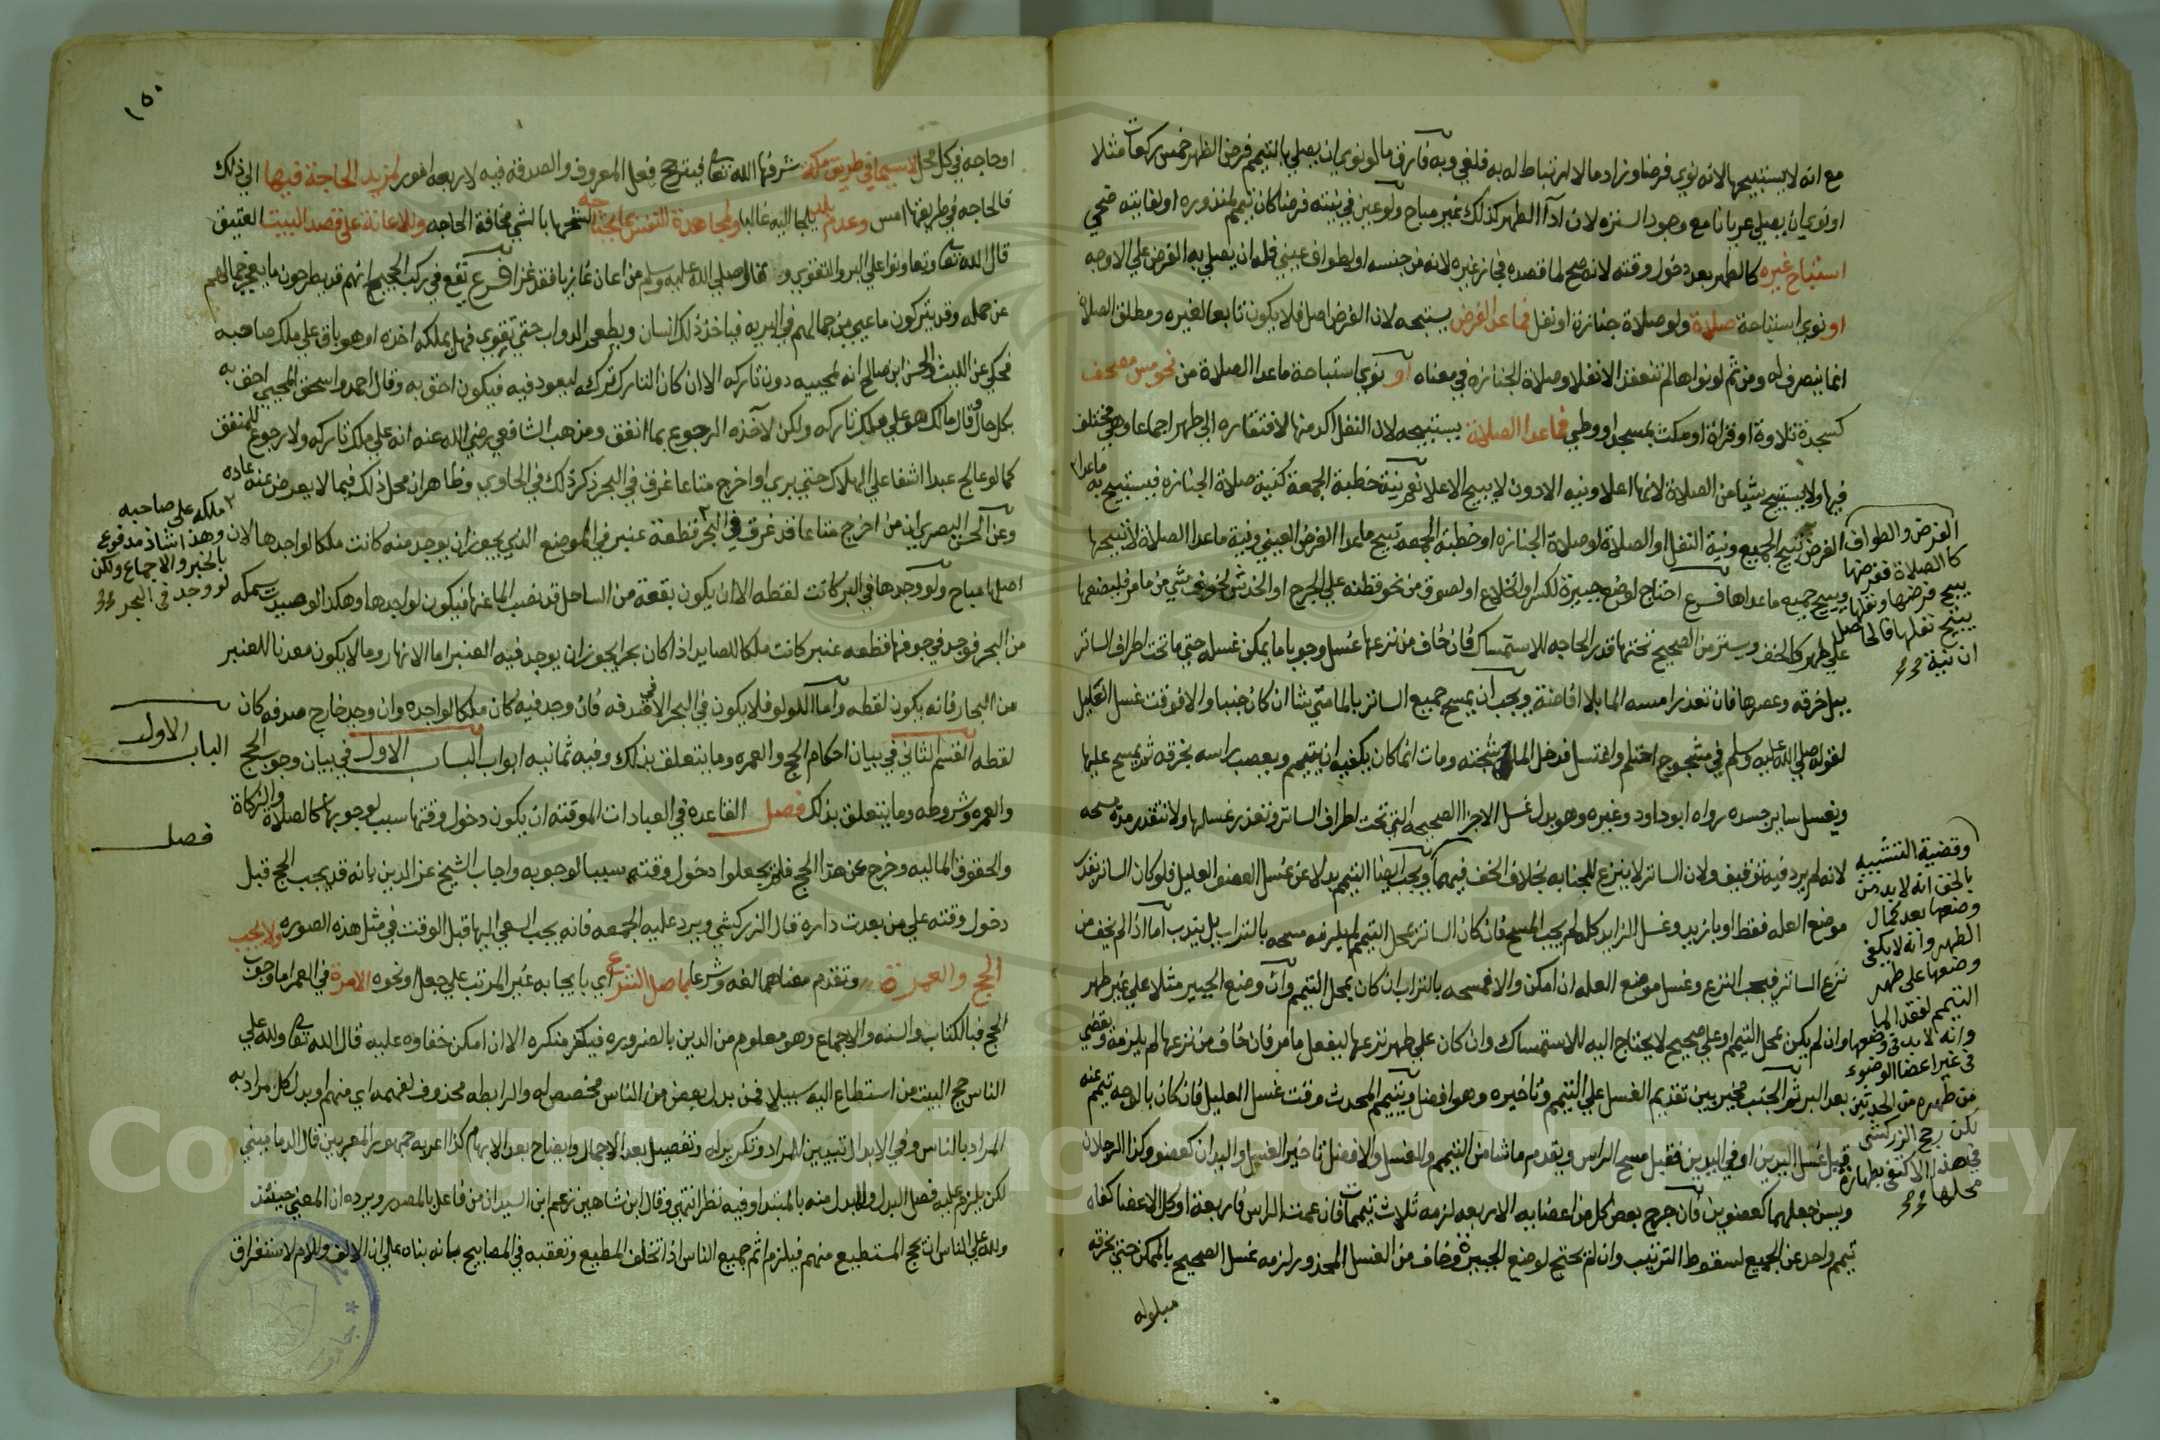 مع انه لا يستبيحها لانه نوى فرضا وزاد ما لا ارتباط له به فلغى وبه فارق ما لو نوى ان يصلي بالتيمم فرض الظهر خمس ركعات مثلا
او نوى ان يصلي عريانا مع وجود السترة لان اداء الظهر كذلك غير مباح ولو عين في نيته فرضا كان تيمم لمنذورة او لفايته ضحى
استباح غيره كالظهر بعد دخول وقته لانه صح لما قصده فجاز غيره لانه من جنسه او لطواف عيني فله ان يصلي به الفرض على الاوجه
او نوى استباحة صلاة ولو صلاة جنازة او نفل فما عدا الفرض يستبيحه لان الفرض اصل فلا يكون تابعا لغيره ومطلق الصلاة
انما ينصرف له ومن ثم لو نواها لم تنعقد الا نفلا وصلاة الجنازه في معناه او نوى استباحة ما عدا الصلاة من نحو مس مصحف
كسجدة تلاوة او قراة او مكث بمسجد او وطي فما عدا الصلاة يستبيحه لان النفل اكد منها لافتقاره الى طهر اجماعا وهي مختلف
فيها ولا يستبيح شيا من الصلاة لانها اعلا ونيه الادون لا يبيح الاعلا نعم نية خطبة الجمعة كنية صلاة الجنازة فيستبيح به
ما عدا
الفرض تبيح الجميع ونية النفل او الصلاة او صلاة الجنازه او خطبة الجمعه تبيح ما عدا الفرض العيني ونية ما عدا الصلاة لا تبيحها
ويبيح جميع ما عداها فرع احتاج لوضع جبيرة لكسر او انخلاع او لصوق من نحو قطنة على الجرح
على طهر كالخف ويستر من الصحيح تحتها قدر الحاجه للاستمساك فان خاف من نزعها غسل وجوبا ما يمكن غسله حتى ما تحت اطراف الساتر
ببل خرقه وعصرها فان تعذر امسه الما بلا افاضة ويجب ان يمسح جميع الساتر بالما متى شا ان كان جنبا والا فوقت غسل العليل
لقوله صلى الله عليه وسلم في مشجوج احتلم واغتسل فدخل الما شجته ومات انما كان يكفيه ان يتيمم ويعصب راسه بخرقه ثم يمسح عليها
ويغسل ساير جسده رواه ابو داود وغيره وهو بدل غسل الاجزا الصحيحه التي تحت اطراف الساتر وتعذر غسلها ولا تتقدر مدة مسحه
لانه لم يرد فيه توقيف ولان الساتر لا ينزع للجنابه بخلاف الخف فيهما ويجب ايضا التيمم بدلا عن غسل العضو العليل فلو كان الساتر بقدر
موضع العله فقط او بازيد وغسل الزايد كله لم يجب المسح فان كان الساتر بمحل التيمم لم يلزمه مسحه بالتراب بل يندب اما اذا لم يخف من
نزع الساتر فيجب النزع وغسل موضع العله ان امكن والا فمسحه بالتراب ان كان بمحل التيمم وان وضع الجبيره مثلا على غير طهر
وان لم يكن بمحل التيمم او على صحيح لا يحتاج اليه للاستمساك وان كان على طهر نزعها ليفعل ما مر فان خاف من نزعها لم يلزمه ويقضي
بعد البرء ثم الجنب مخير بين تقديم الغسل على التيمم وتاخيره وهو افضل ويتيمم المحدث وقت غسل العليل فان كان بالوجه تيمم عنه
قبل غسل اليدين او في اليدين فقبل مسح الراس ويقدم ما شا من التيمم والغسل والافضل تاخير الغسل واليدان كعضو وكذا الرجلان
ويسن جعلهما كعضوين فان جرح بعض كل من اعضايه الاربعه لزمه ثلاث تيممات فان عمت الراس فاربعة او كل الاعضا كفاه
تيمم واحد عن الجميع لسقوط الترتيب وان لم يحتج لوضع الجبيرة وخاف من الغسل المحذور لزمه غسل الصحيح بالممكن حتى بخرقه
مبلوله
الفرض والطواف
كالصلاة ففرضها
يبيح فرضها ونفلها
يبيح نفلها فالحاصل
ان نية
وقضية التشبيه
بالخف انه لا بد من
وضعها بعد كمال
الطهر وانه لا يكفي
وضعها على طهر
التيمم لفقد الما
وانه لا بد في وضعها
في غير اعضا الوضوء
من طهره من الحدثين
لكن رجح الزركشي
في هذه الاكتفى بطهارة
محلها
١٥٠
او حاجه في كل محل لا سيما في طريق مكة شرفها الله تعالى فيترجح فعل المعروف والصدقة فيه لاربعه امور لمزيد الحاجة فيها الى ذلك
فالحاجه في طريقها امس وعدم بلد يلجا اليه غالبا ولمجاهدة النفس لشحها بالشي مخافة الحاجه وللاعانة على قصد البيت العتيق
قال الله تعالى وتعاونوا على البر والتقوى وقال صلى الله عليه وسلم من اعان غازيا فقد غزا فرع تقع في ركب الحجيج انهم قد يطرحون ما يعجز جمالهم
عن حمله وقد يتركون ما عيى من جمالهم في البريه فياخذ ذلك انسان ويطعم الدواب حتى تقوى فهل يملكه اخذه او هو باق على ملك صاحبه
فحكي عن الليث والحسن ابن صالح انه لمحييه دون تاركه الا ان كان التارك تركه ليعود فيه فيكون احق به وقال احمد واسحق المحيي احق به
بكل حال وقال مالك هو على ملك تاركه ولكن لاخذه الرجوع بما انفق ومذهب الشافعي رضي الله عنه انه على ملك تاركه ولا رجوع للمنفق
كما لو عالج عبدا اشفا على الهلاك حتى بري او اخرج متاعا غرق في البحر ذكر ذلك في الحاوي وظاهر ان محل ذلك فيما لا يعرض عنه عاده
وعن الحسن البصري ان من اخرج متاعا قد غرق في البحر قطعة عنبر في الموضع الذي يجوز ان يوجد منه كانت ملكا لواجدها لان
اصلها مباح ولو وجدها في البر كانت لقطه الا ان يكون بقعة من الساحل قد نضب الما عنها فيكون لواجدها وهكذا لو صيدت سمكه
من البحر فوجد في جوفها قطعه عنبر كانت ملكا للصايد اذا كان بحرا يجوز ان يوجد فيه العنبر اما الانهار وما لا يكون معدنا للعنبر
من البحار فانه يكون لقطه واما اللولو فلا يكون في البحر الا في صدفه فان وجد فيه كان ملكا لواجده وان وجد خارج صدفه كان
لقطه القسم الثاني في بيان احكام الحج والعمره وما يتعلق بذلك وفيه ثمانيه ابواب الباب الاول في بيان وجوب الحج
والعمره وشروطه وما يتعلق بذلك فصل القاعده في العبادات الموقته ان يكون دخول وقتها سبب لوجوبها كالصلاة والزكاة
والحقوق الماليه وخرج عن هذا الحج فلم يجعلوا دخول وقته سببا لوجوبه واجاب الشيخ عز الدين بانه قد يجب الحج قبل
دخول وقته على من بعدت داره قال الزركشي ويرد عليه الجمعه فانه يجب السعي اليها قبل الوقت في مثل هذه الصوره ولا يجب
الحج والعمرة وتقدم معناهما لغه وشرعا باصل الشرع اي بايجابه غير المرتب على جعل ونحوه الا مرة في العمر اما وجوب
الحج فبالكتاب والسنه والاجماع وهو معلوم من الدين بالضروره فيكفر منكره الا ان امكن خفاوه عليه قال الله تعالى ولله على
الناس حج البيت من استطاع اليه سبيلا فمن بدل بعض من الناس مخصص له والرابطه محذوف لفهمه اي منهم او بدل كل مراد به
المراد بالناس وفي الابدال تبيين المراد وتكريره وتفصيل بعد الاجمال وايضاح بعد الابهام كذا اعربه جمهور المعربين قال الدماميني
لكن يلزم عليه فصل البدل والمبدل منه بالمبتدا وفيه نظر انتهى وقال ابن شاهين زعم ابن السيد ان من فاعل بالمصدر ويرده ان المعنى حينئذ
ولله على الناس ان يحج المستطيع منهم فيلزم اثم جميع الناس اذا تخلف المطيع وتعقبه في المصابيح بانه بناه على ان الالف واللام لاستغراق
ملكه على صاحبه
وهذا شاذ مدفوع
بالخبر والاجماع ولكن
لو وجد في البحر
الباب الاول
فصل
Copyright © King Saud University